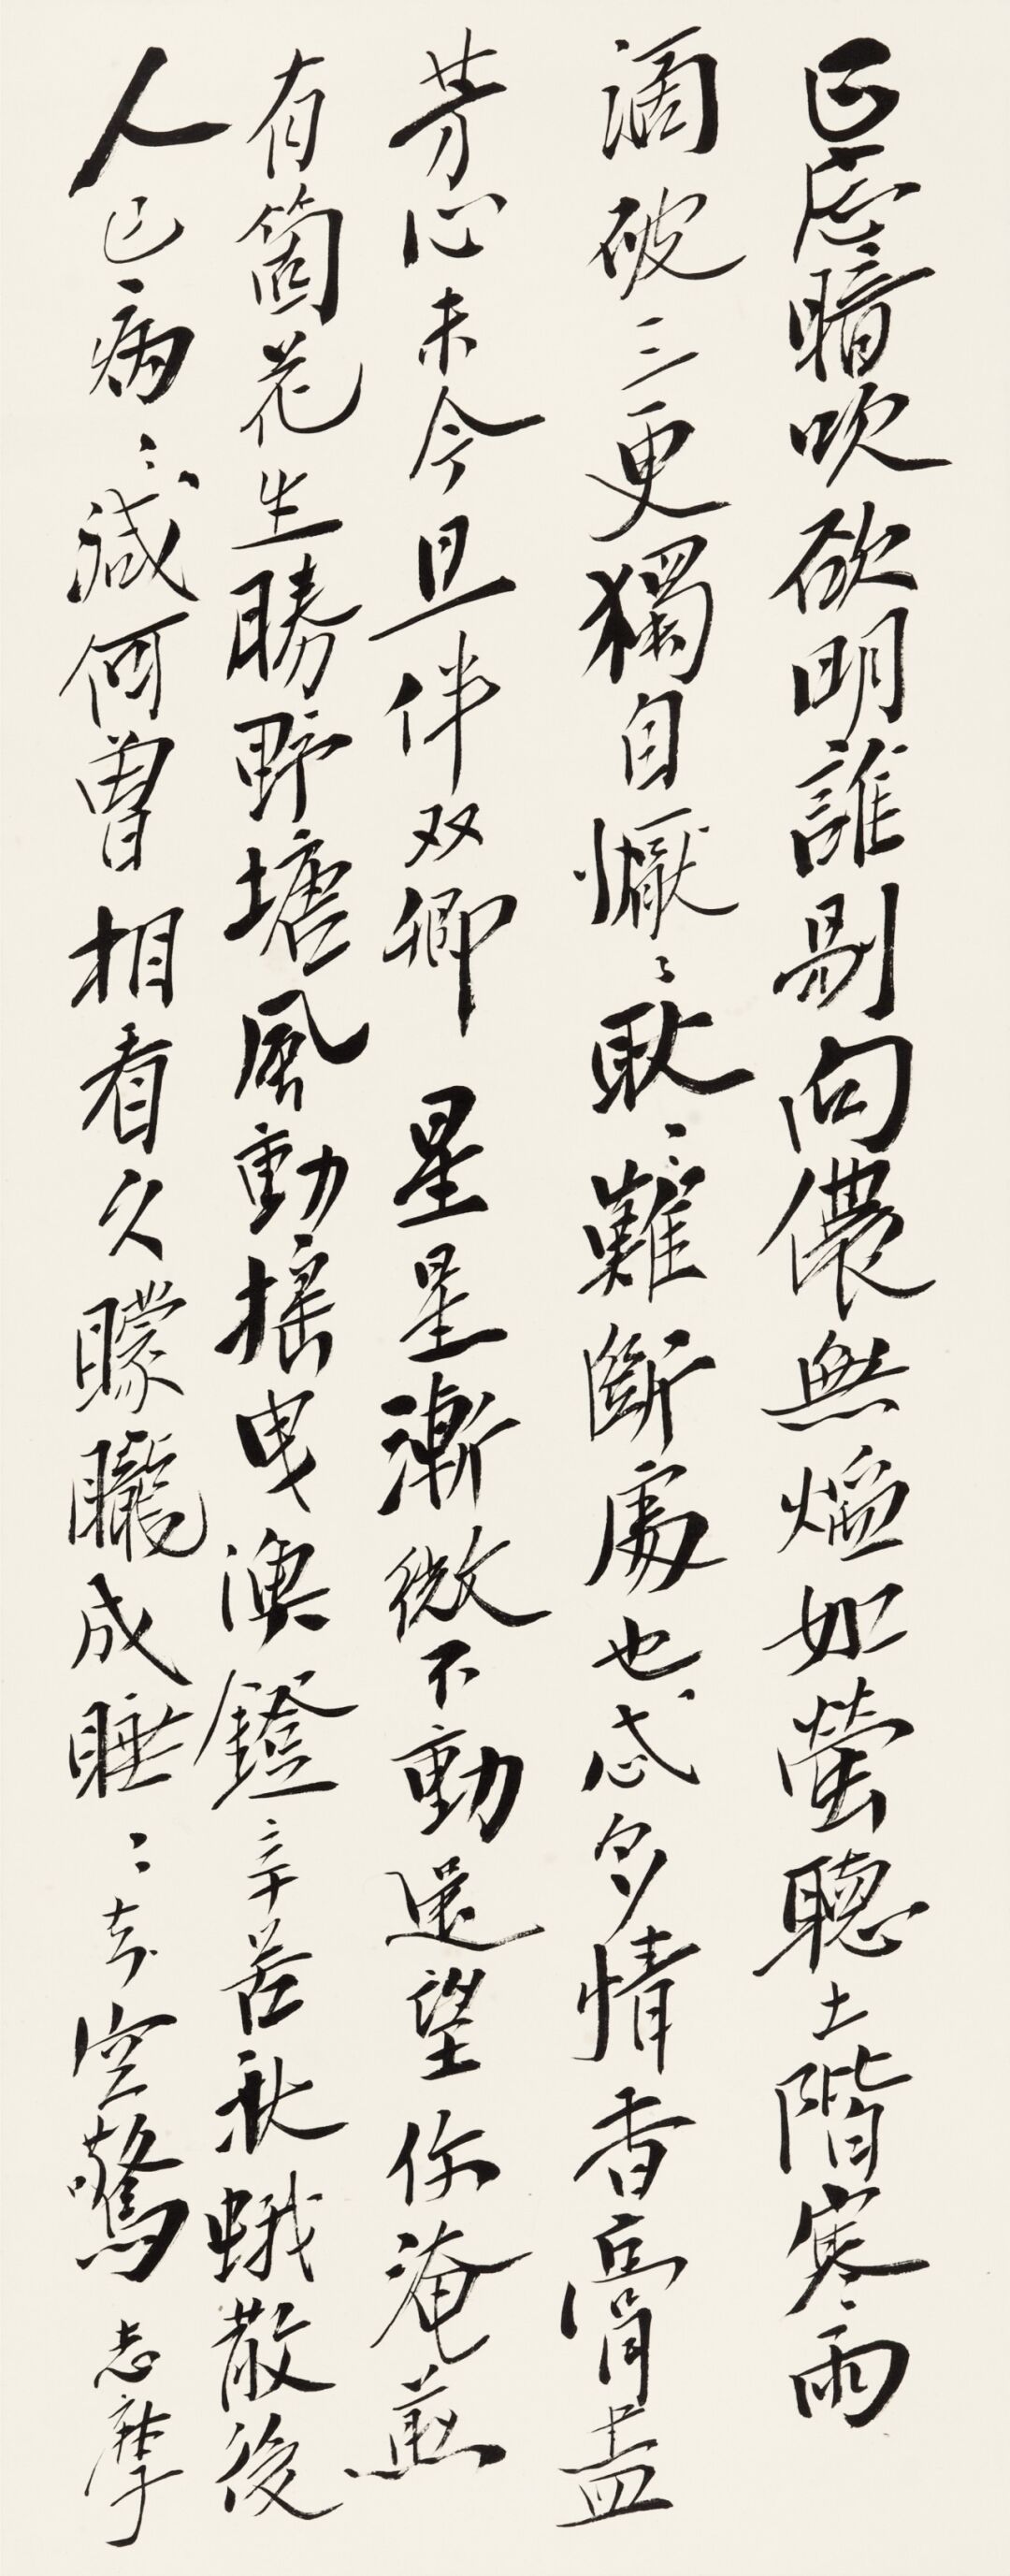 已忘暗吹欲明誰剔向儂無焰如螢聽土階寒雨
滴破三更獨自懨〻耿〻難斷處也忒多情香膏盡
芳心未今且伴双卿 星星漸微不動還望你淹煎
有箇花生勝野塘風動搖曳漁鐙辛苦秋蛾散後
人已病〻減何曾相看久矇矓成睡〻去空驚 志摩